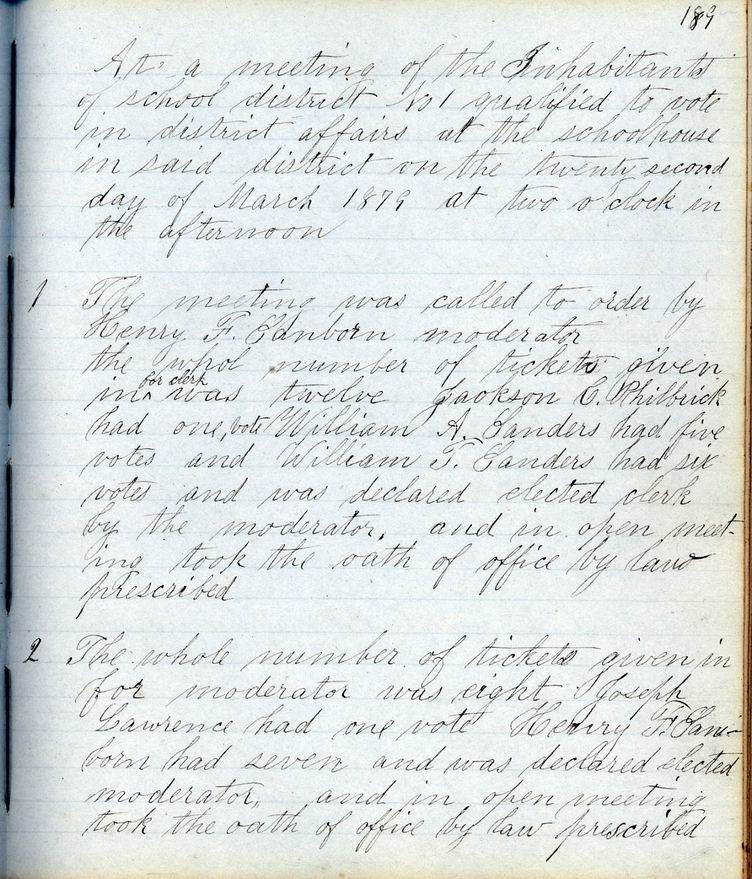 189
At a meeting of the Inhabitants
of school district No 1 qualified to vote
in district affairs at the schoolhouse
in said district on the twenty second
day of March 1879 at two o'clock in
the afternoon
1 The meeting was called to order by
Henry F. Sanborn moderator
the whol number of tickets given
in ^ for clerk was twelve Jackson C. Philbrick
had one, vote William A. Sanders had five
votes and William T. Sanders had six
votes and was declared elected clerk
by the moderator, and in open meet-
ing took the oath of office by law
prescribed
2 The whole number of tickets given in
for moderator was eight Joseph
Lawrence had one vote Henry F. San-
born had seven and was declared elected
moderator, and in open meeting
took the oath of office by law prescribed